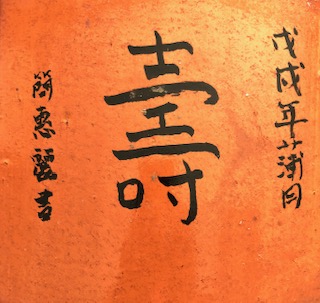 戊戌年蒲月
壽
簡惠麗書